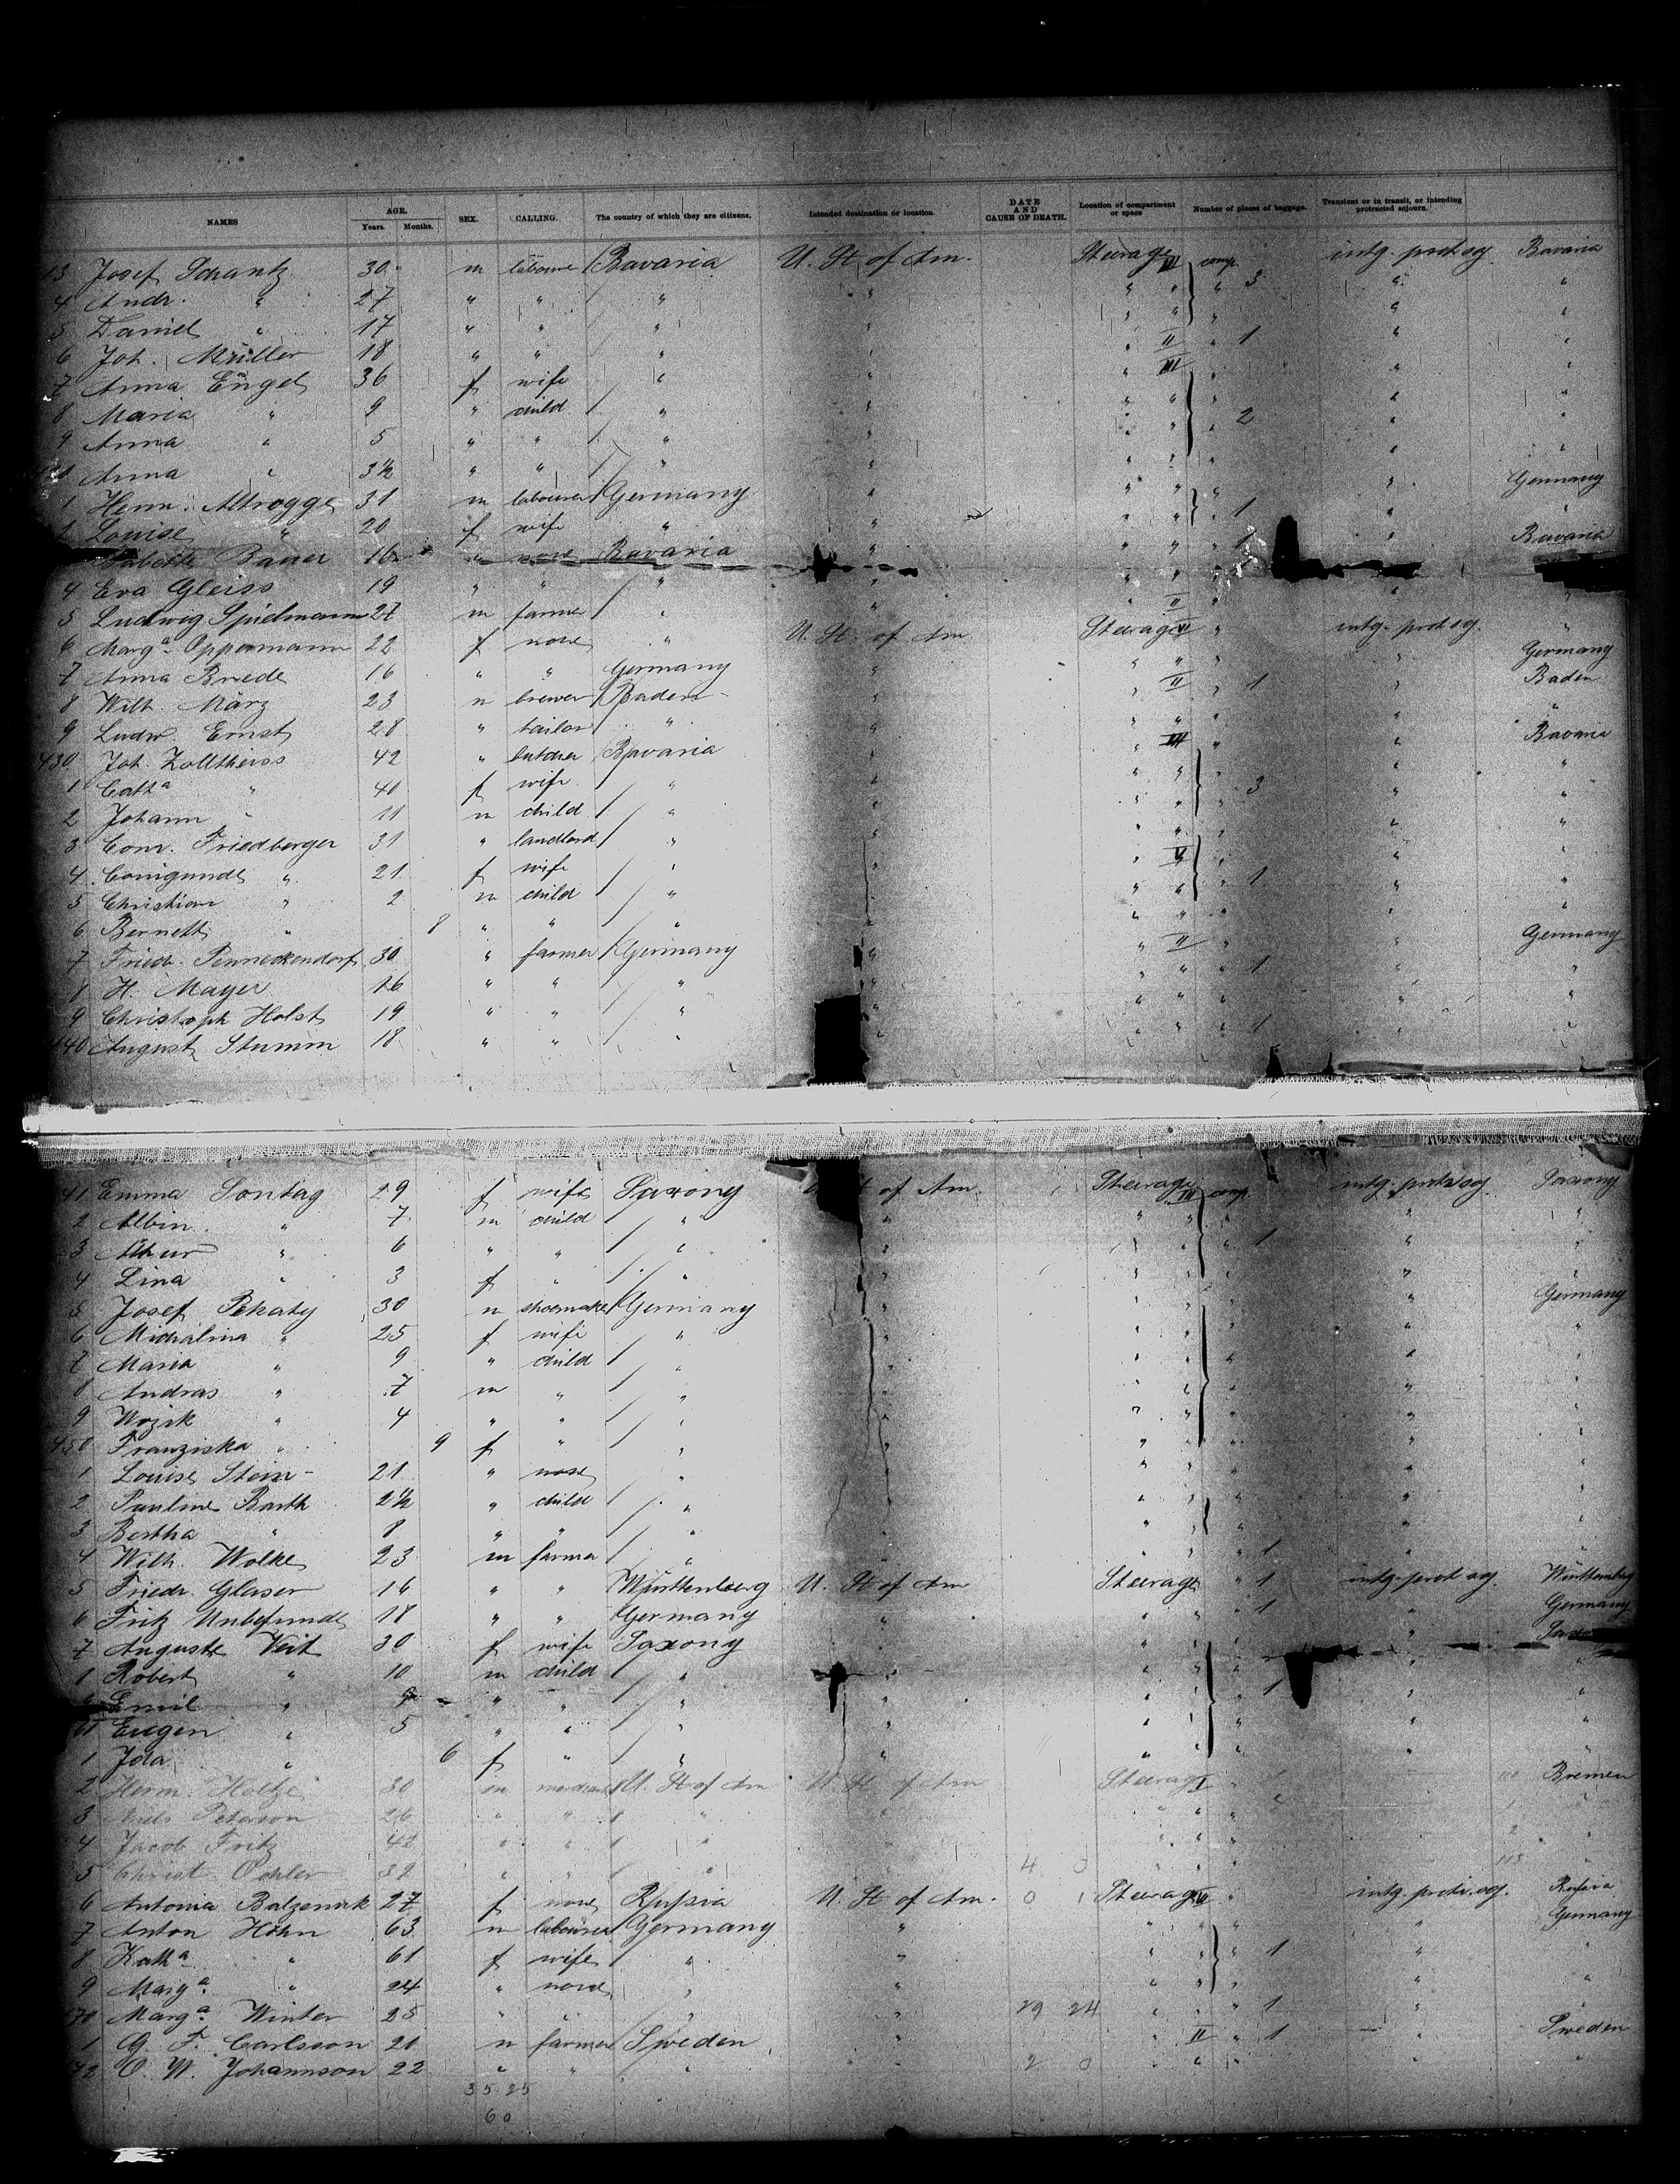 NAMES AGE. Years. Months. SEX. CALLING. The country of which they are citizens. Intended destination or location. DATE AND CAUSE OF DEATH. Location of compartment or space Number of pieces of baggage. Transient or in transit, or intending protracted sojourn.
13 Josef Schantz 30 m laboure Bavaria U. St of Am. Steerage III comp. intg. prot. soj Bavaria
4 Andr. " 27 " " " " " " " 3 " "
5 Daniel " 17 " " " " " " " " "
6 Joh. Müller 18 " " " " " II " 1 " "
7 Anna Engel 36 f wife " " " III " " "
8 Maria " 9 " child " " " " " "
9 Anna " 5 " " " " " " " 2 " "
Anna " 3½ " " " " " " " " "
1 Herm. Altrogge 31 m labourer Germany " " " " " Germany
2 Louise " 20 f wife " " " " " 1 "
Babette Bauer 16 " none Bavaria " " " " 1 " Bavaria
4 Eva Gleiss 19 " " " " " "
5 Ludwig Spielmann 27 m farmer " " " II " "
6 Marga Oppermann 22 f none " U. St. of Am Steerage " intg. prot. soj. "
7 Anna Briede 16 " " Germany " " " " " Germany
8 Wilh. März 23 m brewer Baden " " II " 1 " Baden
9 Ludw. Ernst 28 " tailor " " " " " " "
430 Joh. Zolltheiss 42 " butcher Bavaria " " III " " Bavaria
1 Catha " 40 f wife " " " " " " "
2 Johann " 11 m child " " " " " 3 " "
3 Conr. Friedberger 31 " landlord " " " " " " "
4 Conigunde " 21 f wife " " " " " " "
5 Christian " 2 m child " " " " " 1 " "
6 Bernett " 8 " " " " " " " " "
7 Friedr. Penneckendorf 30 " farmer Germany " " II " " Germany
8 H. Mayer 16 " " " " " " " 1 " "
9 Christoph Holst 19 " " " " " " " " "
440 August Stumm 18 " " " " " " " 1 " "
41 Emma Sontag 29 f wife Saxony of Am. Steerage III comp. intg. prot. soj Saxony
2 Albin " 7 m child " " " " " "
3 " 6 " " " " " " " 1 " "
4 Lina " 3 f " " " " " " "
5 Josef Pekaty 30 m shoemaker Germany " " " " Germany
6 Michalina " 25 f wife " " " " " "
7 Maria " 9 " child " " " " " "
8 Andras " 7 m " " " " " " "
9 " 4 " " " " " " " "
450 Franziska " 9 f " " " " " " "
1 Louise Stein 21 " none " " " " " "
2 Pauline Barth 2½ " child " " " " " "
3 Bertha " 8 " " " " " " " "
4 Wilh. Wolke 23 m farmer " " " " " 1 " "
5 Friedr. Glaser 16 " " Württenberg U. St of Am Steerage " 1 intg. prot. soj. Württemberg
6 Fritz 18 " " Germany " " " " 1 " Germany
7 Auguste Veit 30 f wife Saxony " " " Saxo
8 Robert " 10 m child " " " " " "
Emil " 9 " " " " " " " 1 " "
Eugen " 5 " " " " " " " "
1 Ida " 6 f " " " " " " "
2 Herm. Holtze 30 m U. St of Am U. St of Am Steerage I " Bremen
3 Niels Peterson 26 " " " " " " "
4 Jacob Fritz 42 " " " " " " 2 "
5 Christ. Oehler 32 " " " 4 0 " " 115 "
6 Antonia 27 f none Russia U. St of Am. 0 1 Steerage " intg. prot. soj. Russia
7 Anton Höhn 63 m labourer Germany " " " " Germany
8 Katha " 61 f wife " " " " " 1 " "
9 Marga " 24 " none " " " " " "
Marga Winter 25 " " " " 29 24 " " " 1 " "
1 G. F. Carlsson 20 m farmer Sweden " II " 1 " Sweden
72 O. W. Johannson 22 " " " " 2 0 " " " " "
35 25
60